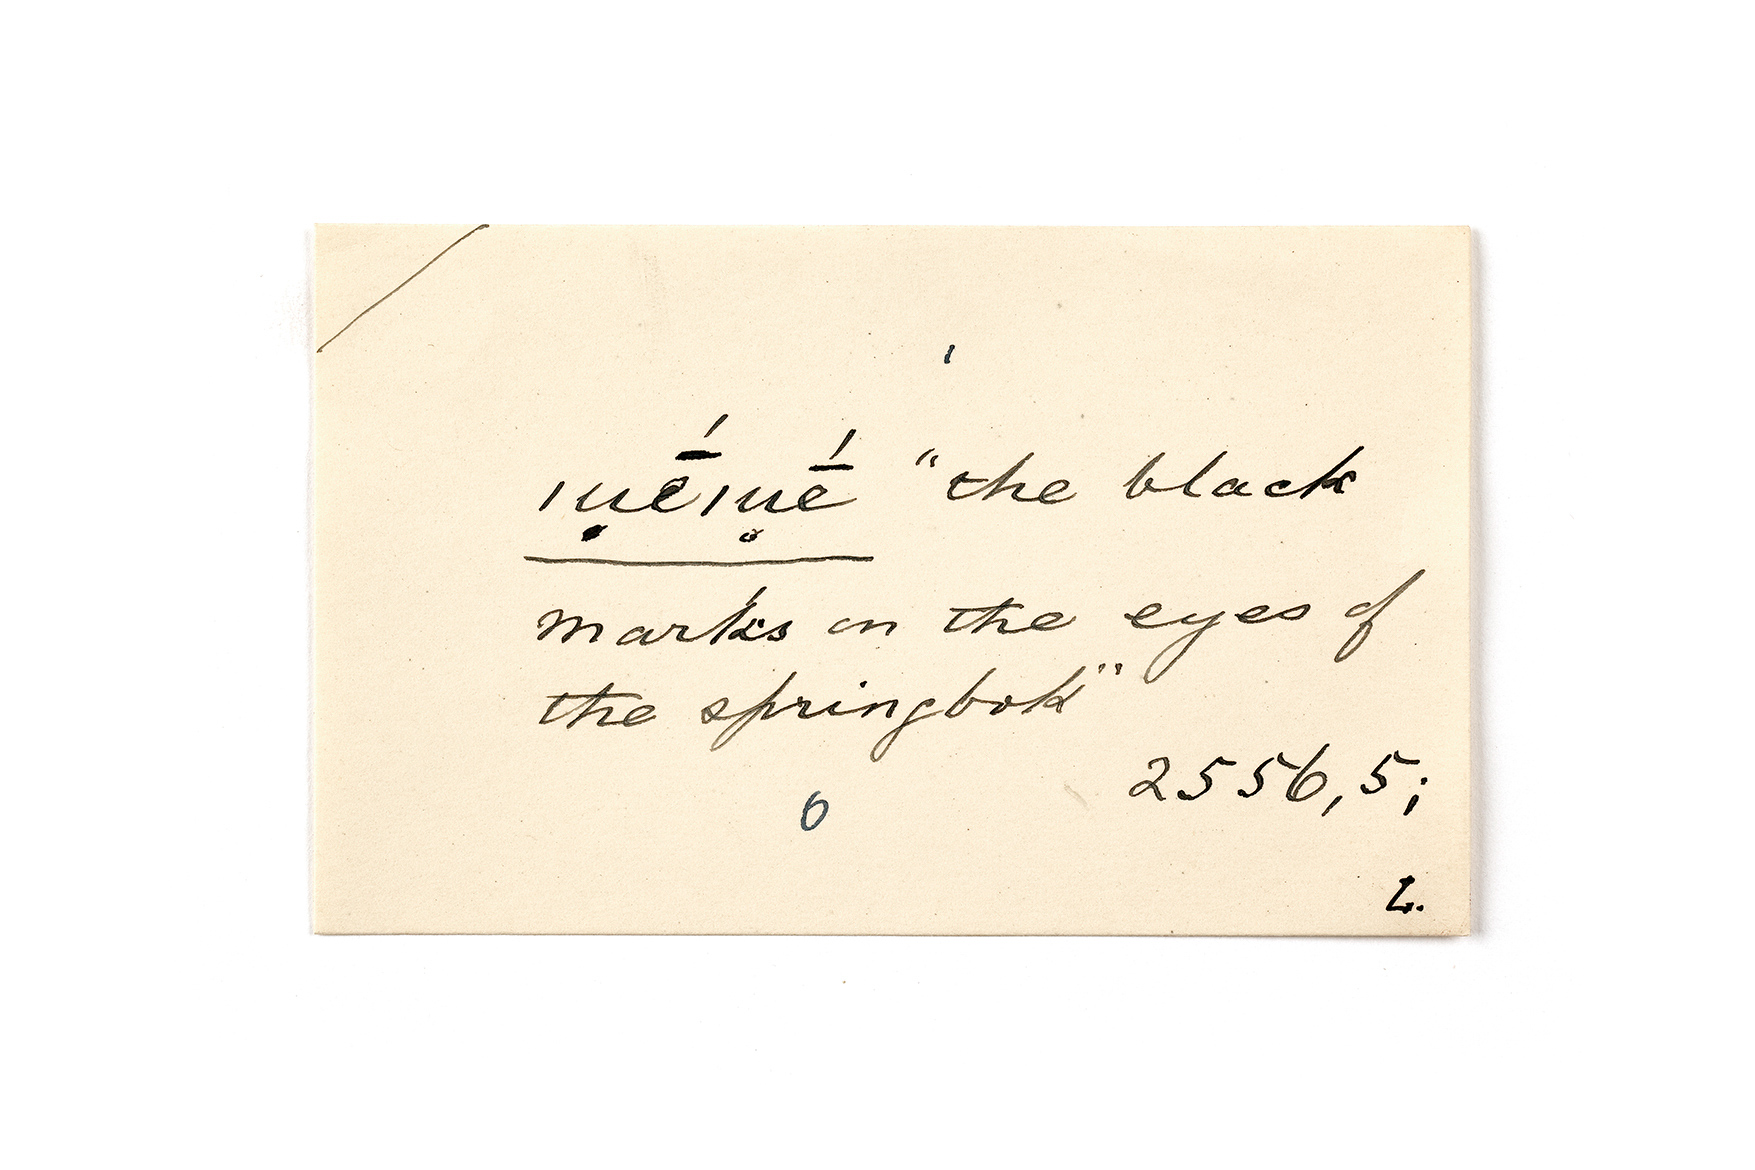 ˈ
ǀu̥ḗǀu̥ḗ "the black
marks on the eyes of
the springbok"
2556,5;
6
L.